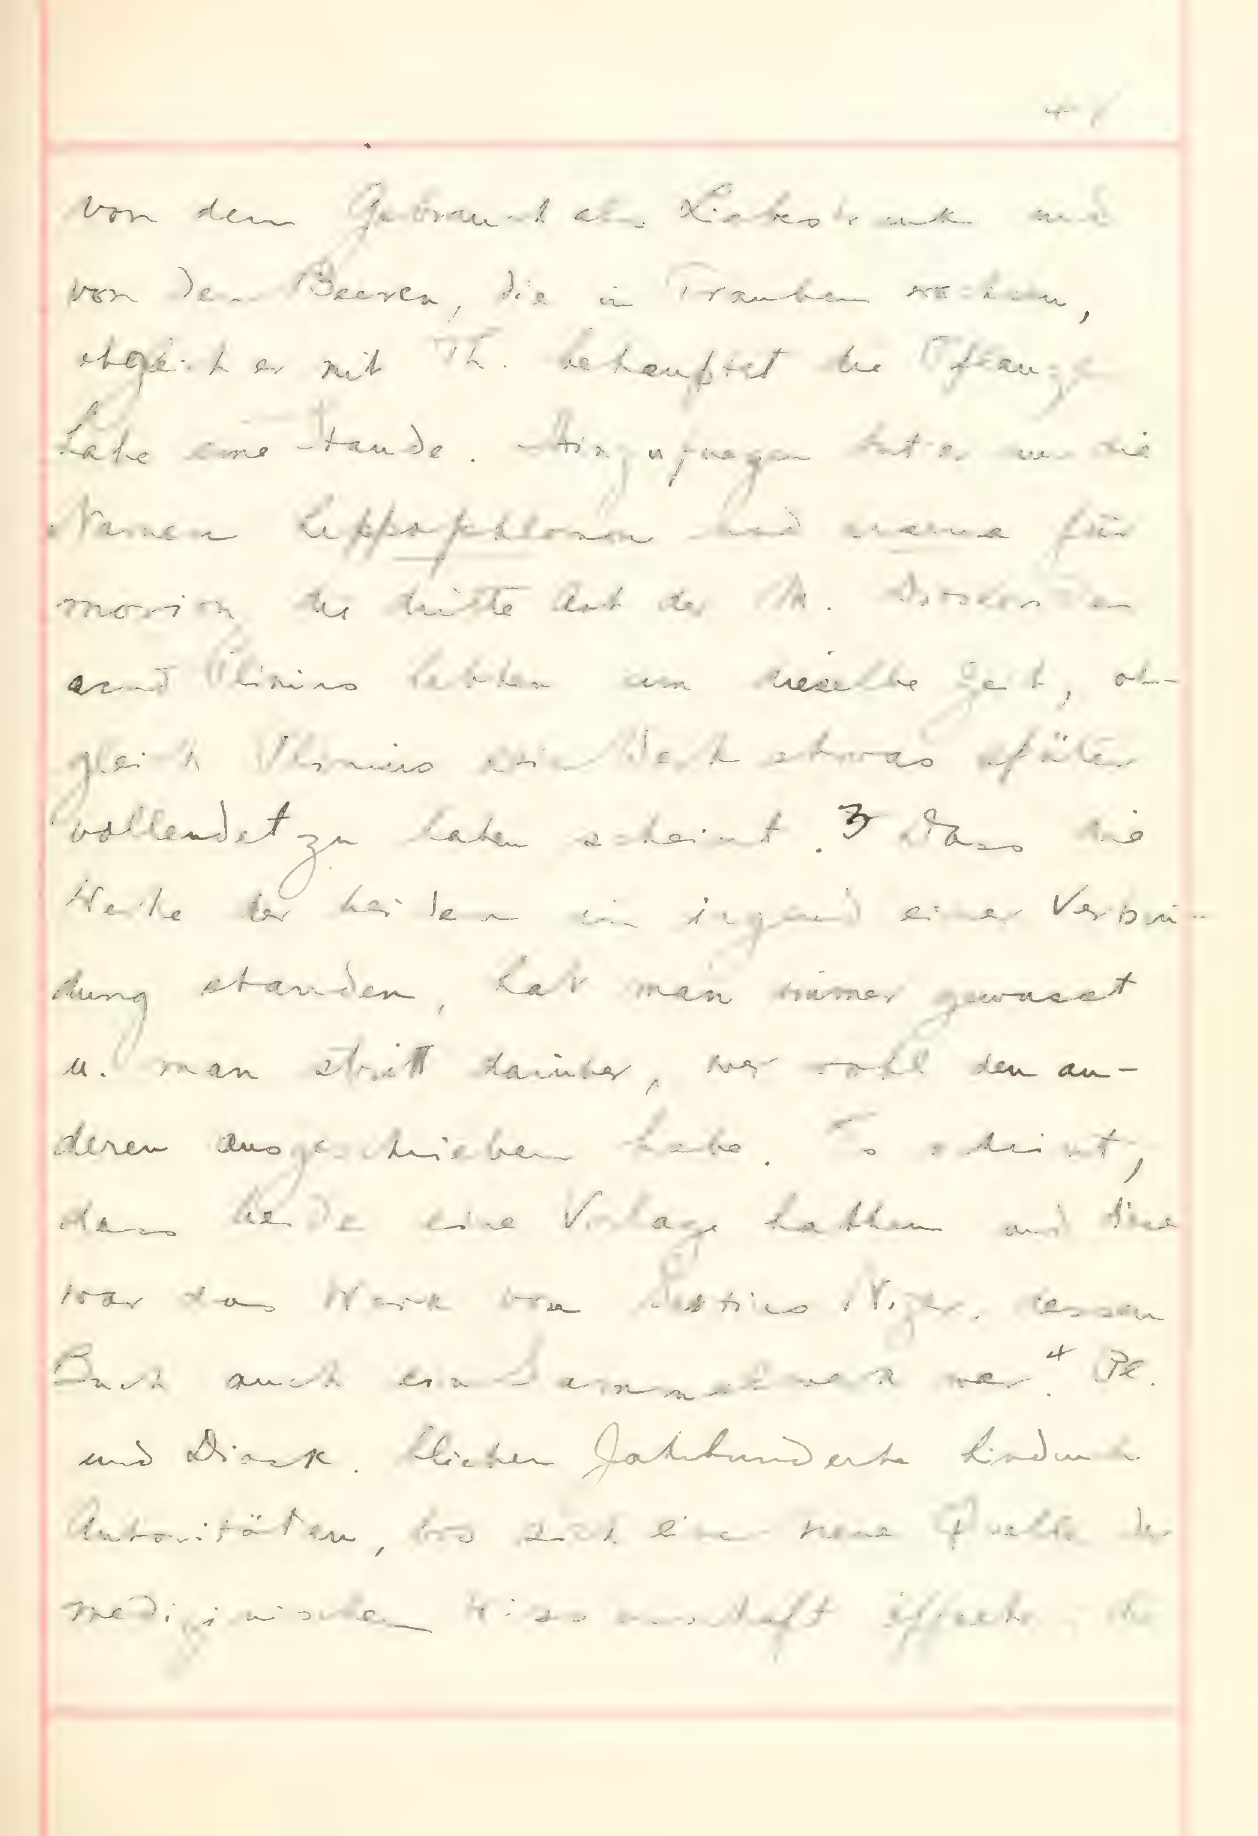 von dem Gebrauch als Liebestrank und
von den Beeren, die in Trauben wachsen,
obgleich er mit Th. behauptet die Pflanze
habe eine Staude. Hinzufuegen tut er nur die
Namen hippophlomon und arsena für
morion, die dritte Art der M. Dioskorides
und Plinius lebten um dieselbe Zeit, ob-
gleich Plinius sein Werk etwas später
vollendet zu haben scheint.3 Dass die
Werke der beiden in irgend einer Verbin-
dung standen, hat man immer gewusst
u. man stritt darüber, wer wohl den an-
deren ausgeschrieben habe. Es scheint,
dass beide eine Vorlage hatten und diese
war das Werk von Sextius Niger, dessen
Buch auch ein Sammelwerk war.4 Pl.
und Diosk. blieben Jahrhunderte hindurch
Autoritäten, bis sich eine neue Quelle der
medizinischen Wissenschaft öffnete die